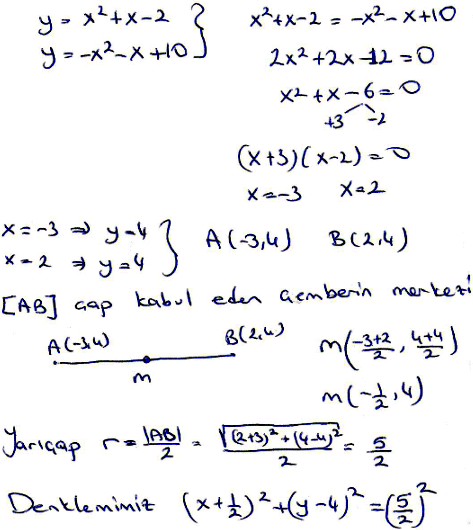 y = x²+x-2 } x²+x-2 = -x²-x+10
y = -x²-x+10 2x²+2x-12 = 0
x²+x-6 = 0
+3 -2
(x+3)(x-2) = 0
x = -3 x = 2
x = -3 ⇒ y = 4 } A(-3,4) B(2,4)
x = 2 ⇒ y = 4
[AB] çap kabul eden çemberin merkezi
A(-3,4) B(2,4) m(-3+2/2, 4+4/2)
m m(-1/2, 4)
Yarıçap r = |AB|/2 = √((2+3)²+(4-4)²)/2 = 5/2
Denklemimiz (x+1/2)²+(y-4)² = (5/2)²